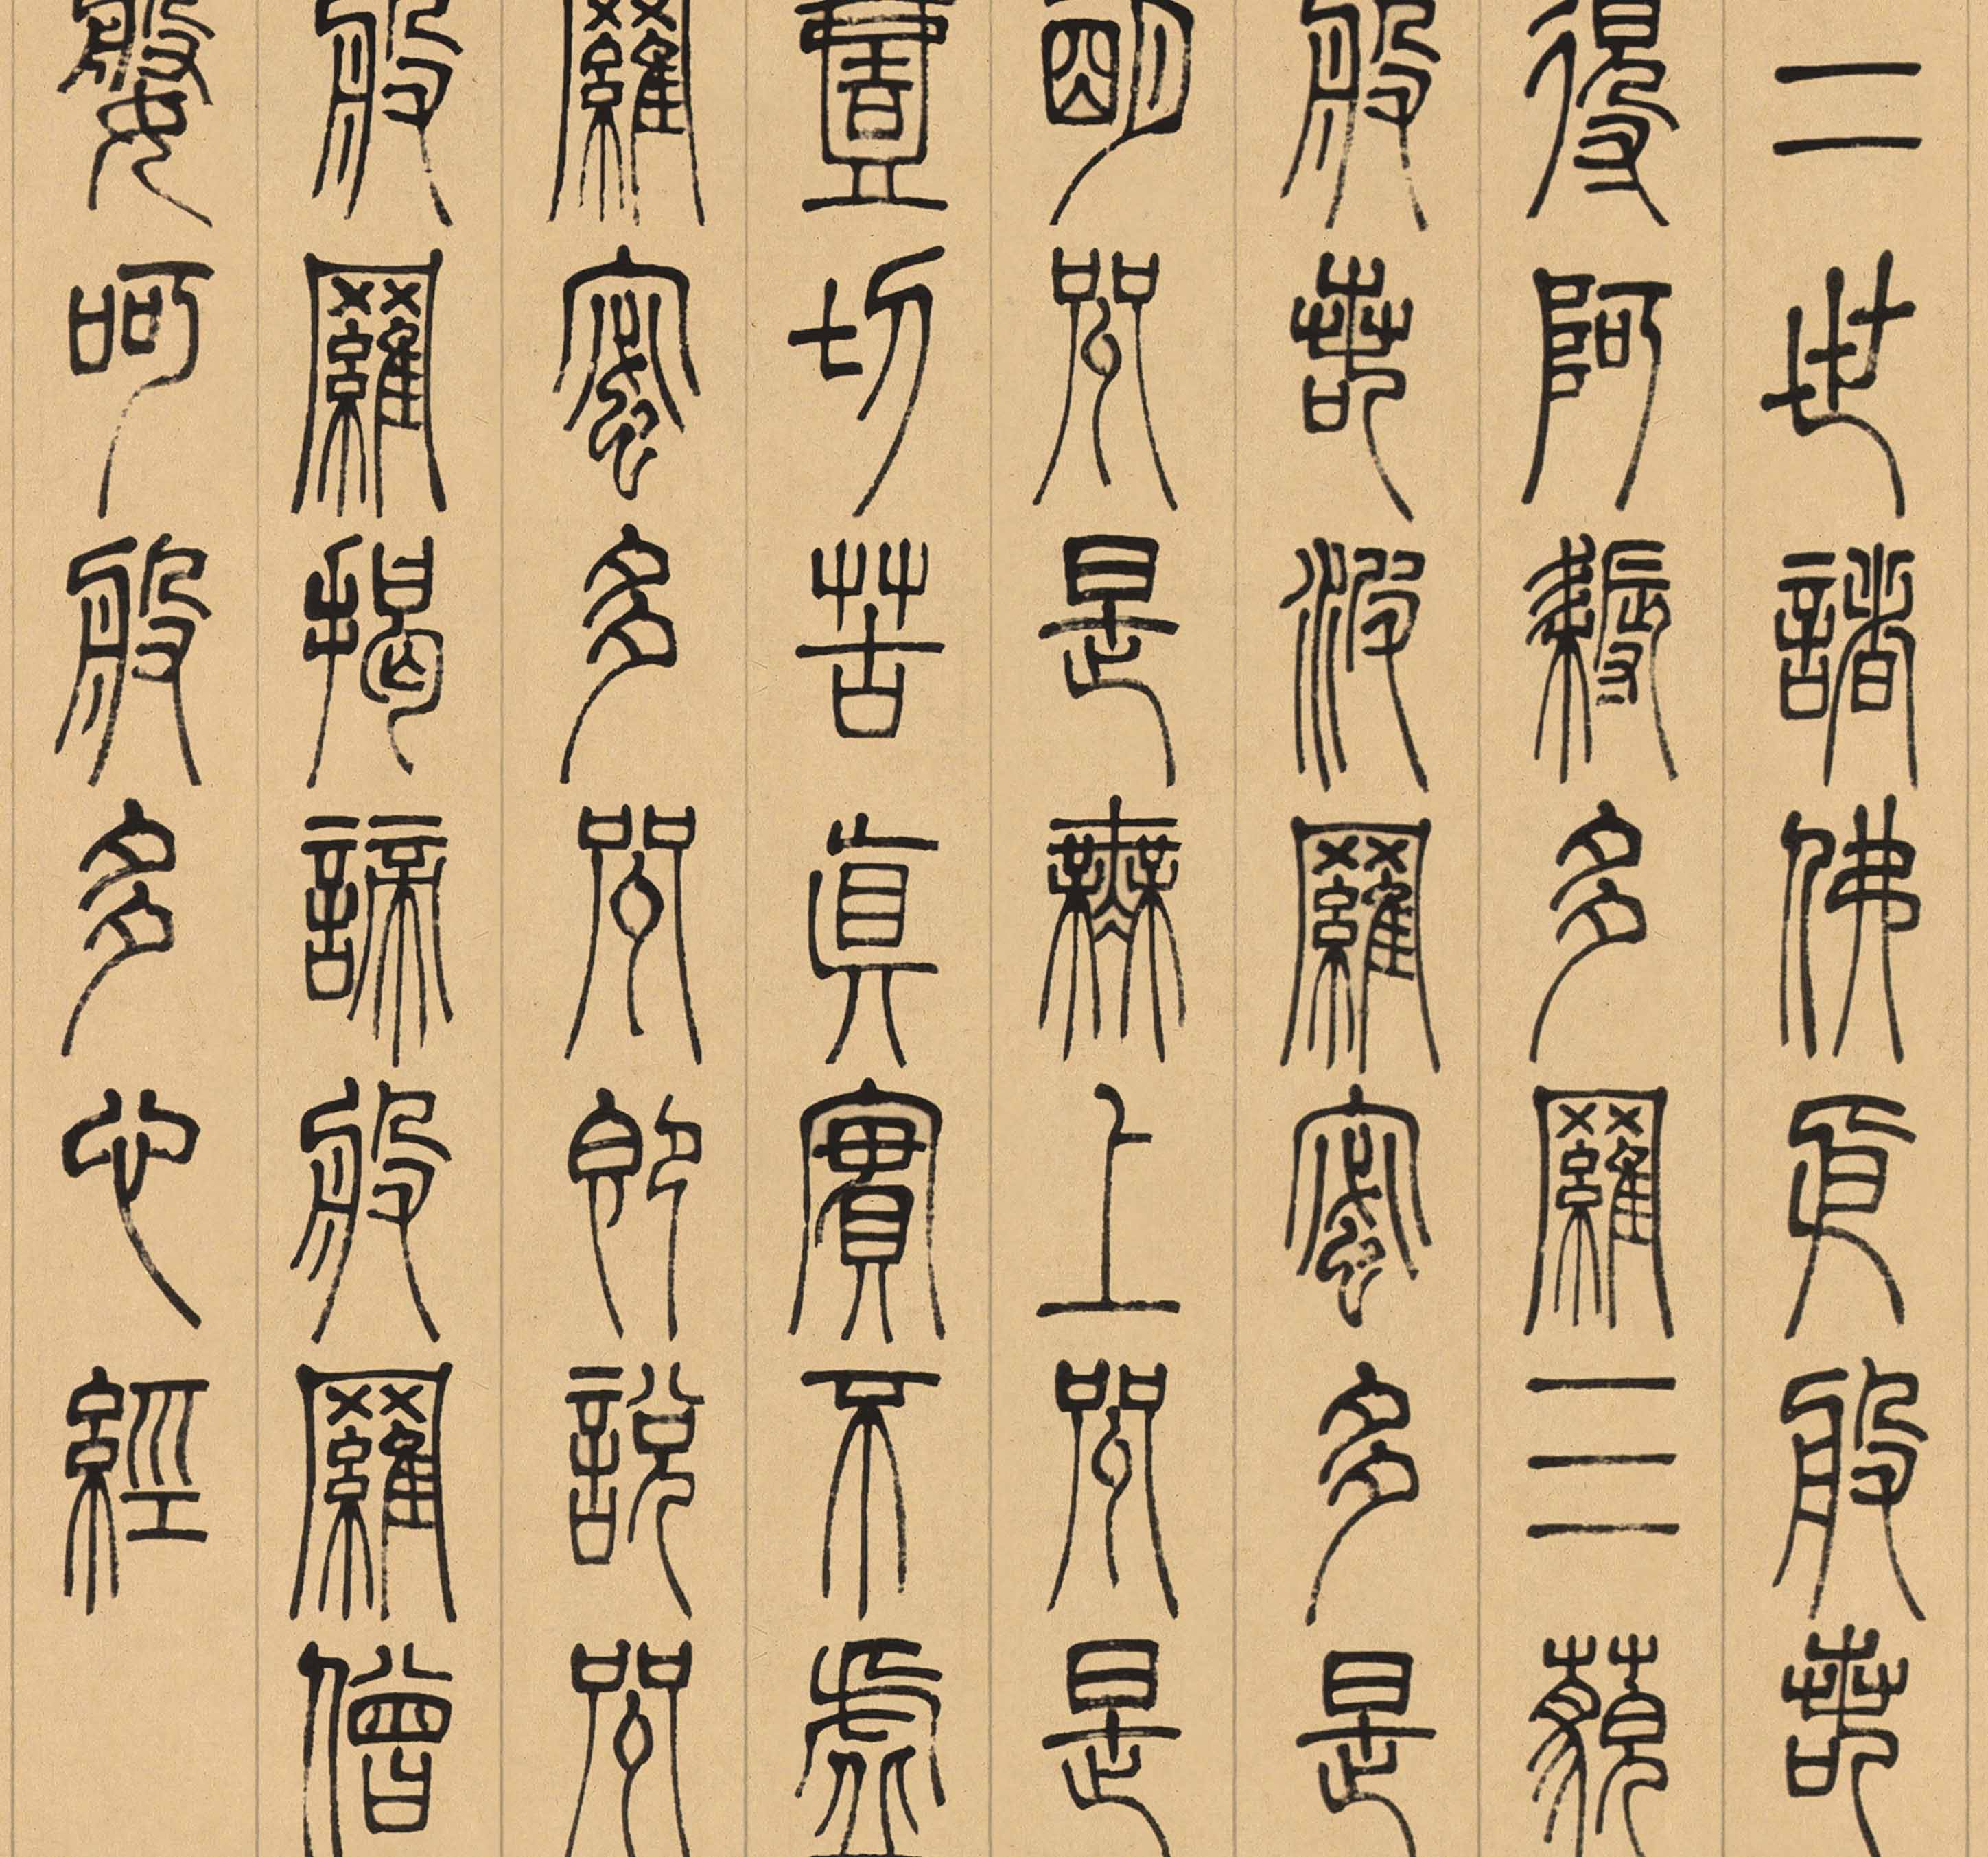 三世諸佛㐆般若
得阿耨多羅三藐
般若波羅蜜多是
明咒是無上咒是
壹切苦真實不虛
羅蜜多咒即說咒
般羅揭諦般羅僧
媻呵般多心經